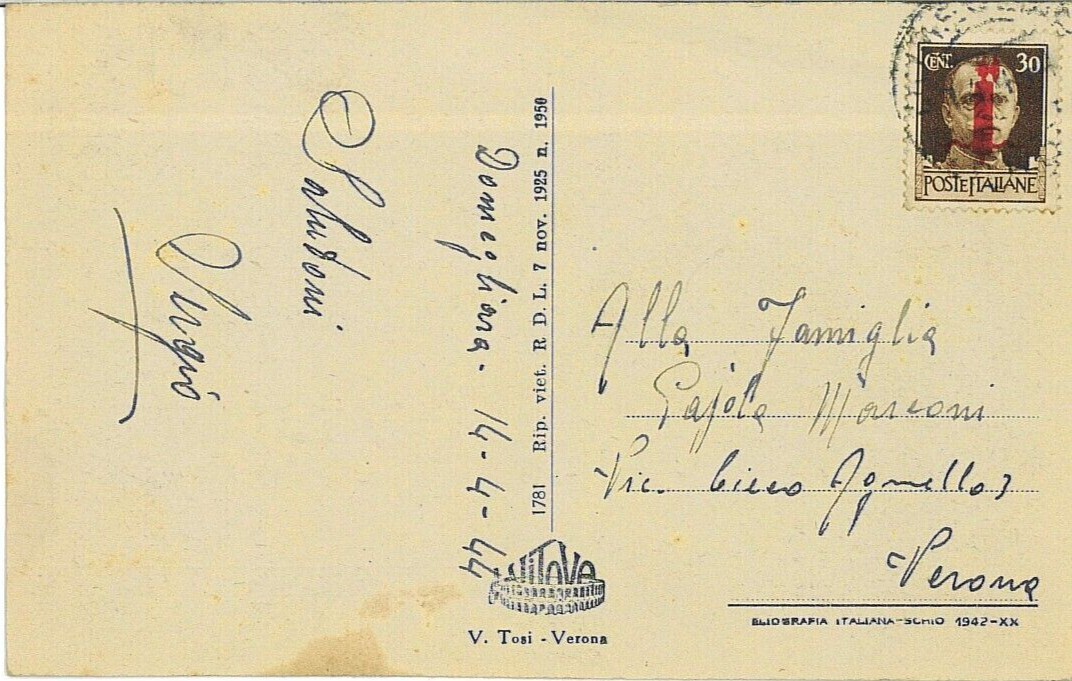 Domegliara. 14-4-44
Saluti
1781 Rip. viet. R. D. L. 7 nov. 1925 n. 1950
VITAVE
V. Tosi - Verona
CENT. 30
POSTE ITALIANE
Alla Famiglia
Marconi
Vic. Cieco
Verona
ELIOGRAFIA ITALIANA-SCHIO 1942-XX